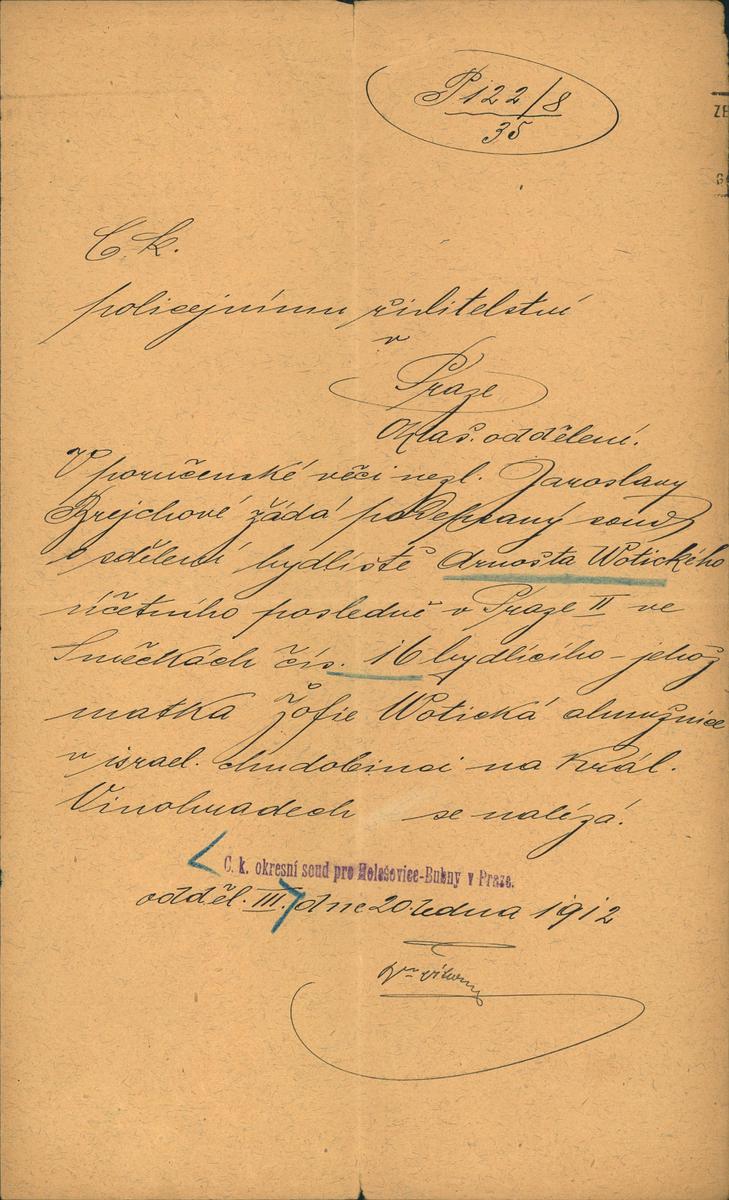 P 122/8
35
ZE
C. k.
policejnímu řiditelství
v
Praze
Ohlaš. oddělení.
V poručenské věci nezl. Jaroslavy
Brejchové žádá podepsaný soud
o sdělení bydliště Arnošta Wotického
účetního posledně v Praze II ve
Smečkách čís. 16 bydlícího – jehož
matka Žofie Wotická almužnice
v israel. chudobinci na Král.
Vinohradech se nalézá.
C. k. okresní soud pro Holešovice-Bubny v Praze.
odděl. III. dne 20. ledna 1912